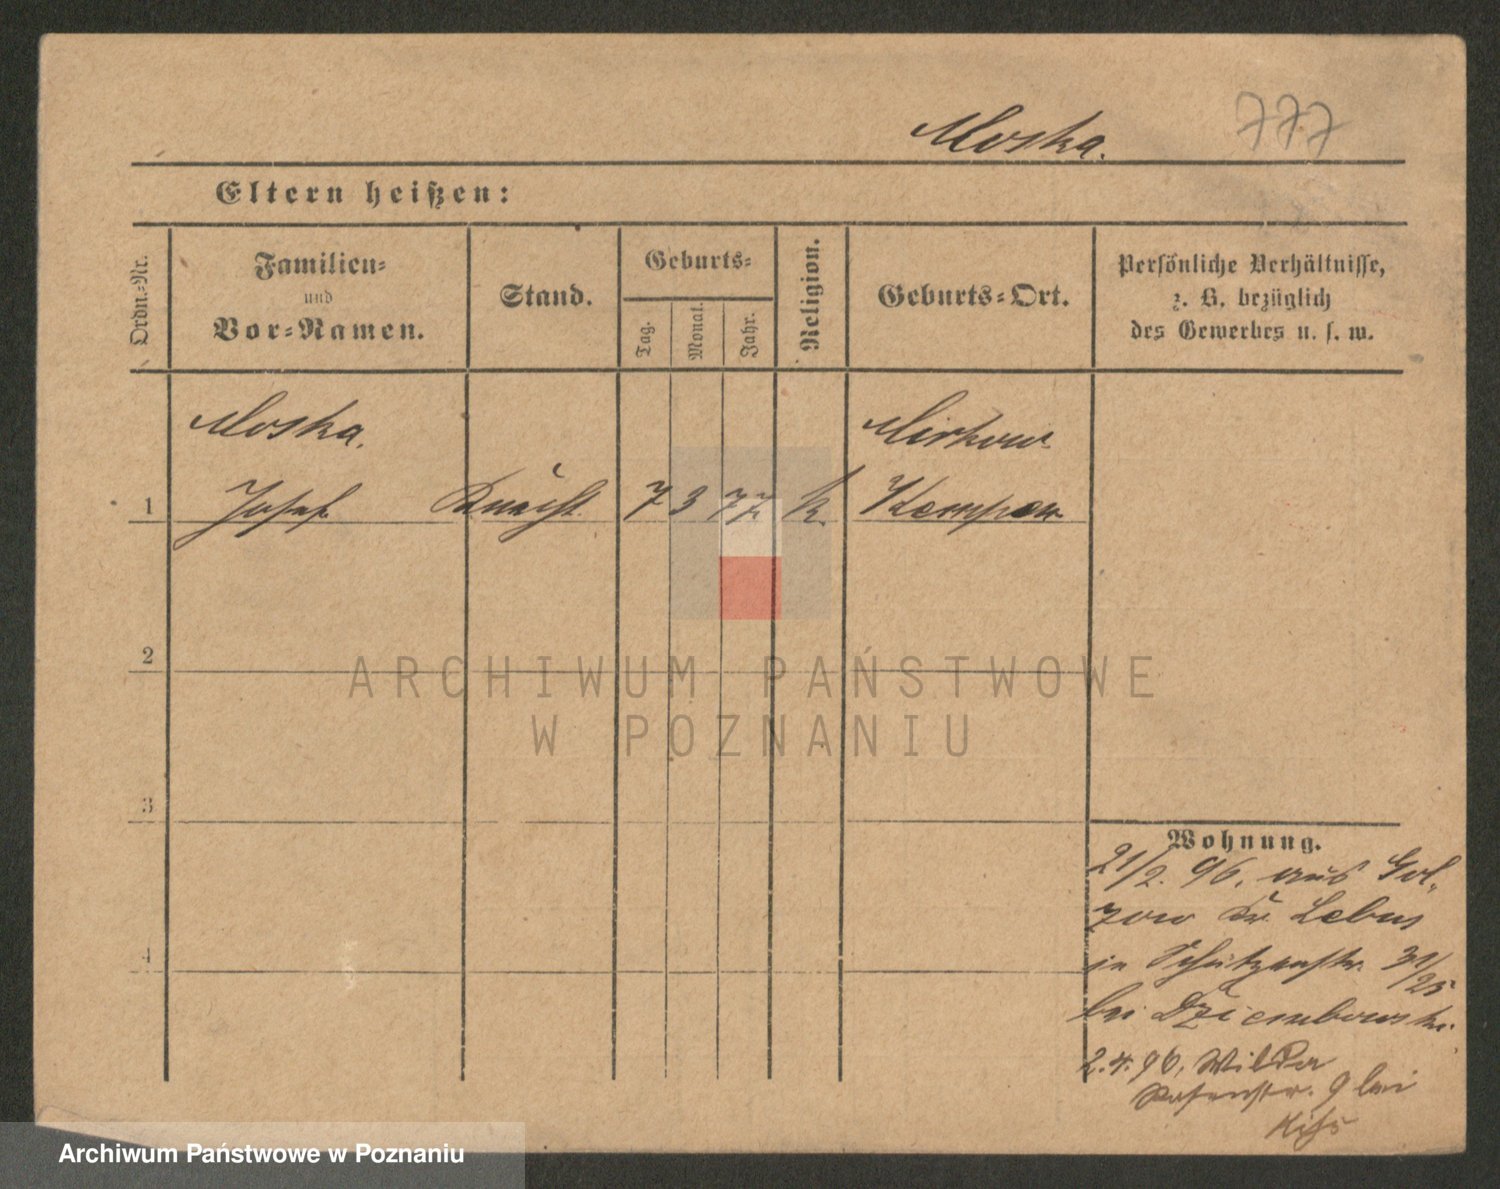 Moska. 777
Eltern heißen:
Ordn.-Nr.
Familien-
und
Vor-Namen.
Stand.
Geburts-
Tag.
Monat.
Jahr.
Religion.
Geburts-Ort.
Persönliche Verhältnisse,
z. B. bezüglich
des Gewerbes u. s. w.
Moska. Mirkow
1 Josef Knecht 7 3 77 k. Kempen
2
3
4
Wohnung.
21/2. 96. aus Gol-
zow Kr. Lebus
in Schützenstr. 31/25
bei Dziembowski.
2.4.96. Wilda
Rosenstr. 9 bei
ARCHIWUM PAŃSTWOWE
W POZNANIU
Archiwum Państwowe w Poznaniu